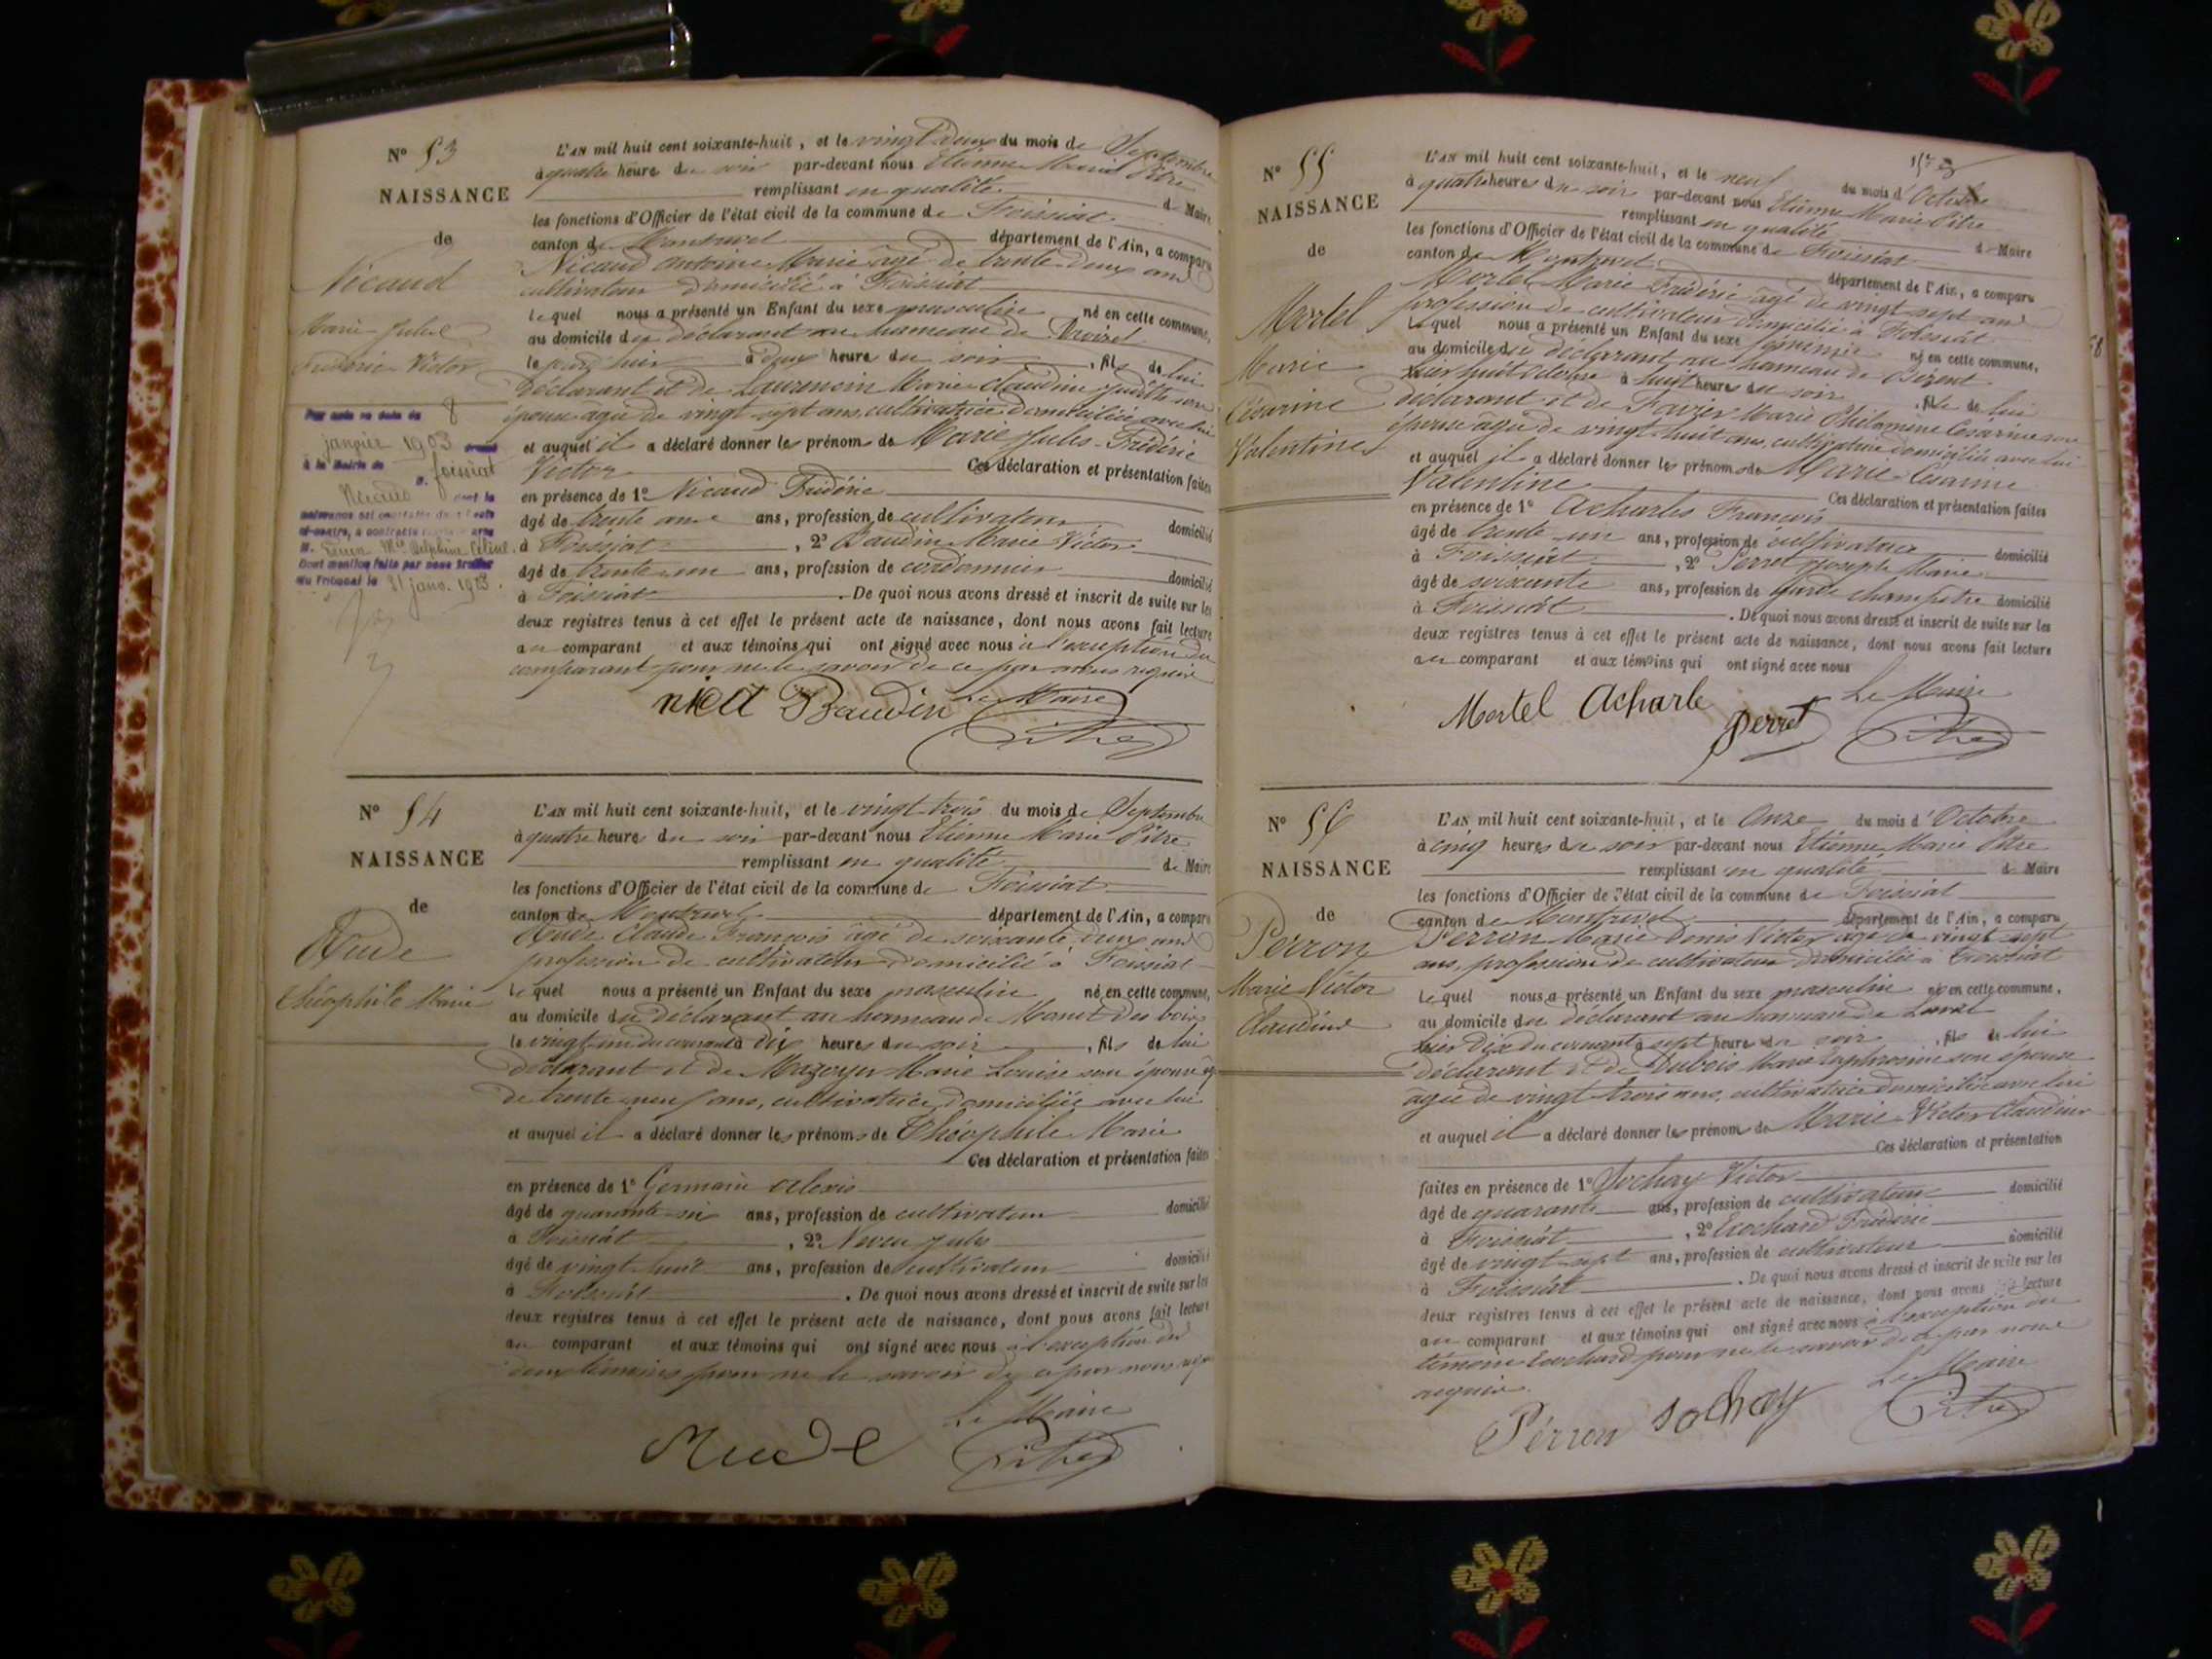 N° 53
NAISSANCE
de
Nicaud
Marie Jules
Frédéric Victor
Par acte en date du 8
janvier 1903 dressé
à la Mairie de Foissiat
M. Nicaud dont la
naissance est constatée
ci-contre, a contracté mariage avec
M. Mlle Delphine Céline.
Dont mention faite par nous Greffier
du Tribunal le 21 janv. 1903.
L'AN mil huit cent soixante-huit, et le vingt deux du mois de Septembre
à quatre heures du soir par-devant nous Etienne Marie Pitre
remplissant en qualité de Maire
les fonctions d'Officier de l'état civil de la commune de Foissiat
canton de Montrevel département de l'Ain, a comparu
Nicaud Antoine Marie âgé de trente deux ans
cultivateur domicilié à Foissiat
lequel nous a présenté un Enfant du sexe masculin né en cette commune,
au domicile du déclarant au hameau de
le jour d'hier à deux heures du soir, fils de lui
déclarant et de Laurencin Marie Claudine Judith son
épouse âgée de vingt sept ans, cultivatrice domiciliée avec lui
et auquel il a déclaré donner les prénoms de Marie Jules Frédéric
Victor Ces déclaration et présentation faites
en présence de 1° Nicaud Frédéric
âgé de trente ans, profession de cultivateur domicilié
à Foissiat, 2° Baudin Marie Victor
âgé de trente un ans, profession de cordonnier domicilié
à Foissiat. De quoi nous avons dressé et inscrit de suite sur les
deux registres tenus à cet effet le présent acte de naissance, dont nous avons fait lecture
au comparant et aux témoins qui ont signé avec nous à l'exception du
comparant pour ne le savoir de ce par nous requis
Le Maire
Baudin Pitre
N° 54
NAISSANCE
de
Théophile Marie
L'AN mil huit cent soixante-huit, et le vingt trois du mois de Septembre
à quatre heures du soir par-devant nous Etienne Marie Pitre
remplissant en qualité de Maire
les fonctions d'Officier de l'état civil de la commune de Foissiat
canton de Montrevel département de l'Ain, a comparu
Claude François âgé de soixante deux ans
profession de cultivateur domicilié à Foissiat
lequel nous a présenté un Enfant du sexe masculin né en cette commune,
au domicile du déclarant au hameau de des bois
le vingt un du courant à dix heures du soir, fils de lui
déclarant et de Mazoyer Marie Louise son épouse âgée
de trente neuf ans, cultivatrice domiciliée avec lui
et auquel il a déclaré donner les prénoms de Théophile Marie
Ces déclaration et présentation faites
en présence de 1° Germain Alexis
âgé de quarante six ans, profession de cultivateur domicilié
à Foissiat, 2° Neveu Jules
âgé de vingt huit ans, profession de cultivateur domicilié
à Foissiat. De quoi nous avons dressé et inscrit de suite sur les
deux registres tenus à cet effet le présent acte de naissance, dont nous avons fait lecture
au comparant et aux témoins qui ont signé avec nous à l'exception des
deux témoins pour ne le savoir de ce par nous requis
Le Maire
Pitre
N° 55
NAISSANCE
de
Mortel
Marie
Césarine
Valentine
L'AN mil huit cent soixante-huit, et le neuf du mois d'Octobre
à quatre heures du soir par-devant nous Etienne Marie Pitre
remplissant en qualité de Maire
les fonctions d'Officier de l'état civil de la commune de Foissiat
canton de Montrevel département de l'Ain, a comparu
Mortel Marie Frédéric âgé de vingt sept ans
profession de cultivateur domicilié à Foissiat
lequel nous a présenté un Enfant du sexe féminin né en cette commune,
au domicile du déclarant au hameau de
hier huit octobre à huit heures du soir, fille de lui
déclarant et de Favier Marie Philomène Césarine son
épouse âgée de vingt huit ans, cultivatrice domiciliée avec lui
et auquel il a déclaré donner les prénoms de Marie Césarine
Valentine Ces déclaration et présentation faites
en présence de 1° Acharles François
âgé de trente un ans, profession de cultivateur domicilié
à Foissiat, 2° Perret Joseph Marie
âgé de soixante ans, profession de garde champêtre domicilié
à Foissiat. De quoi nous avons dressé et inscrit de suite sur les
deux registres tenus à cet effet le présent acte de naissance, dont nous avons fait lecture
au comparant et aux témoins qui ont signé avec nous
Le Maire
Mortel Acharle Perret Pitre
N° 56
NAISSANCE
de
Perron
Marie Victor
Claudius
L'AN mil huit cent soixante-huit, et le Onze du mois d'Octobre
à cinq heures du soir par-devant nous Etienne Marie Pitre
remplissant en qualité de Maire
les fonctions d'Officier de l'état civil de la commune de Foissiat
canton de Montrevel département de l'Ain, a comparu
Perron Marie Denis Victor âgé de vingt sept
ans, profession de cultivateur domicilié à Foissiat
lequel nous a présenté un Enfant du sexe masculin né en cette commune,
au domicile du déclarant au hameau de
hier dix du courant à sept heures du soir, fils de lui
déclarant et de Dubois Marie Euphrosine son épouse
âgée de vingt trois ans, cultivatrice domiciliée avec lui
et auquel il a déclaré donner les prénoms de Marie Victor Claudius
Ces déclaration et présentation
faites en présence de 1° Sochay Victor
âgé de quarante ans, profession de cultivateur domicilié
à Foissiat, 2° Ecochard Frédéric
âgé de vingt sept ans, profession de cultivateur domicilié
à Foissiat. De quoi nous avons dressé et inscrit de suite sur les
deux registres tenus à cet effet le présent acte de naissance, dont nous avons fait lecture
au comparant et aux témoins qui ont signé avec nous à l'exception du
témoin Ecochard pour ne le savoir de ce par nous
requis.
Le Maire
Perron Sochay Pitre